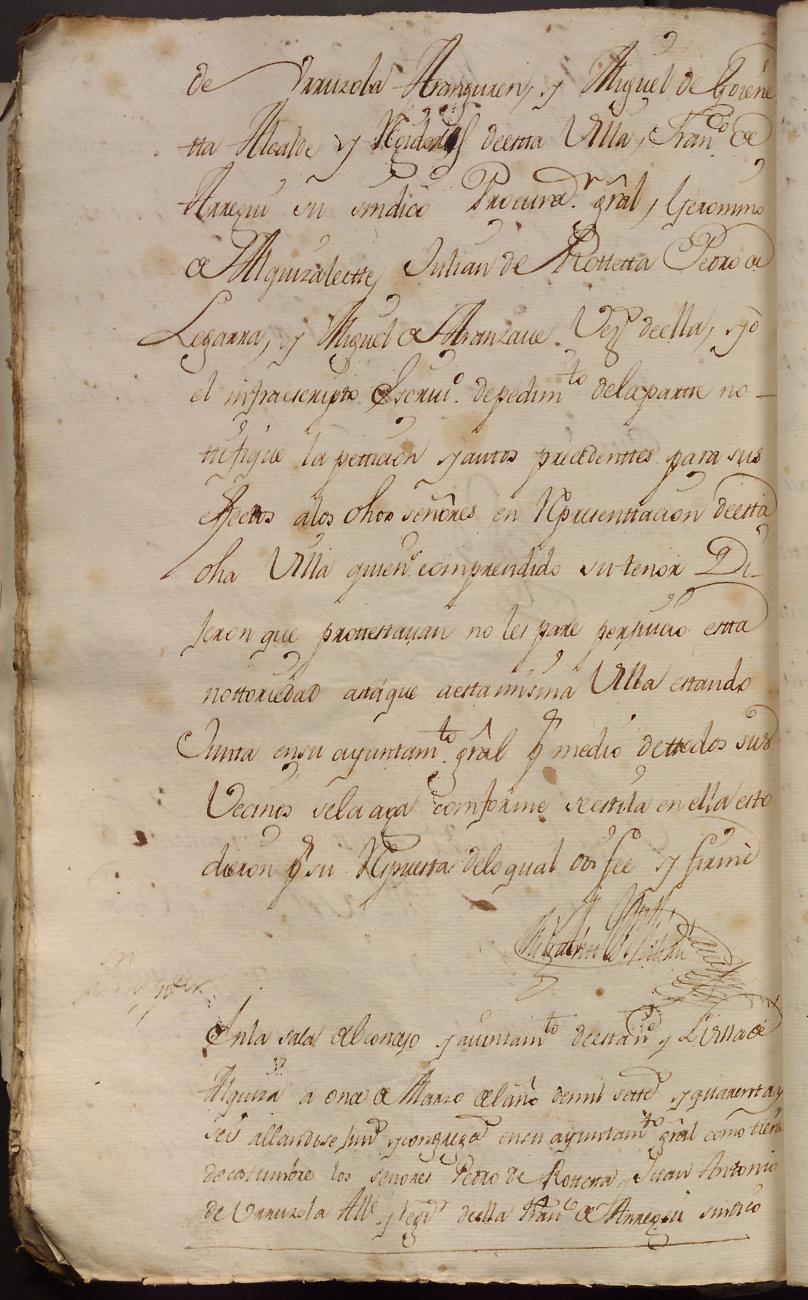 de Vrruzola Aranguren, y Miguel de Goiene
tta Alcalde y Rexidores deestta Villa, Franco. de
Arregui su sindico Procurador. gral, Geronimo
de Alquizalectte, Julian de Rottetta Pedro de
Legarra, y Miguel de Aranzaue Vezs. deella, yo
el infraescripto Sscriuo. depedimto. delapartte no-
ttifique la petticion yauttos prezedenttes para sus
efectos alos dhos señores en Rpresenttacion deesta
dha Villa quiens. comprendido su tenor Di-
jeron que prottestauan no les pare perjuicio estta
nottoriedad astaque aestamisma Villa estando
Junta ensu ayuntamto. gral p medio dettodos sus
Vecinos selaaga comforme seestila enella esto
dieron p su Rpuesta delo qual doi fee y firmè
En la sala del concejo yayuntamto deesta N. y L. Villa de
Alquiza a once de Marzo del año demil settes. yquarentay
seis allandose juns. ycongregs. ensu ayuntamto gral como tienen
decostumbre los señores Pedro de Rottetta y Juan Antonio
de Vrruzola Alle. y regor. deella Franco. de Arregui sindico